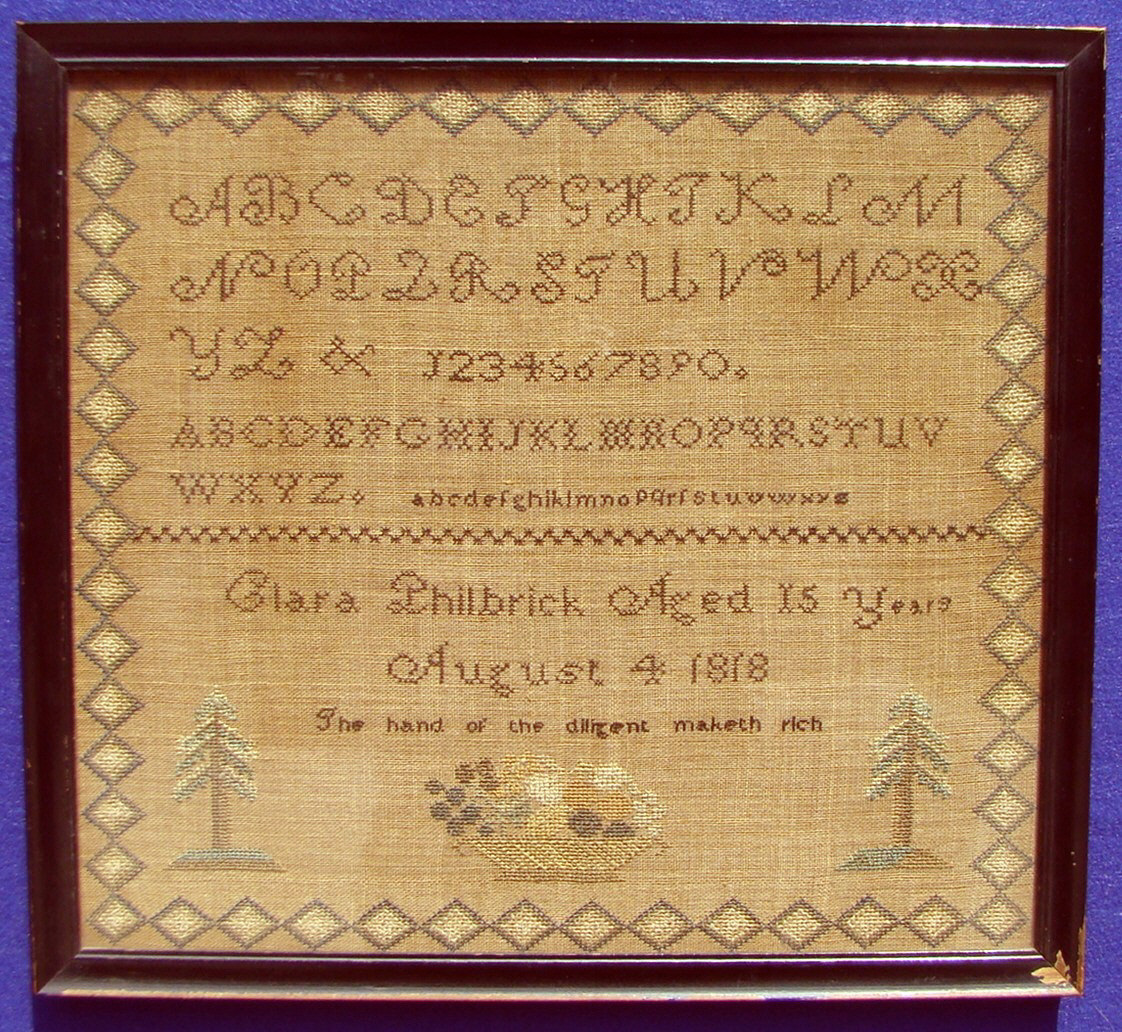 A B C D E F G H I K L M
N O P Q R S T U V W X
Y Z & 1234567890.
ABCDEFGHIJKLMNOPQRSTUV
WXYZ. abcdefghiklmnopqrſstuvwxyz
Clara Philbrick Aged 15 Years
August 4 1818
The hand of the diligent maketh rich